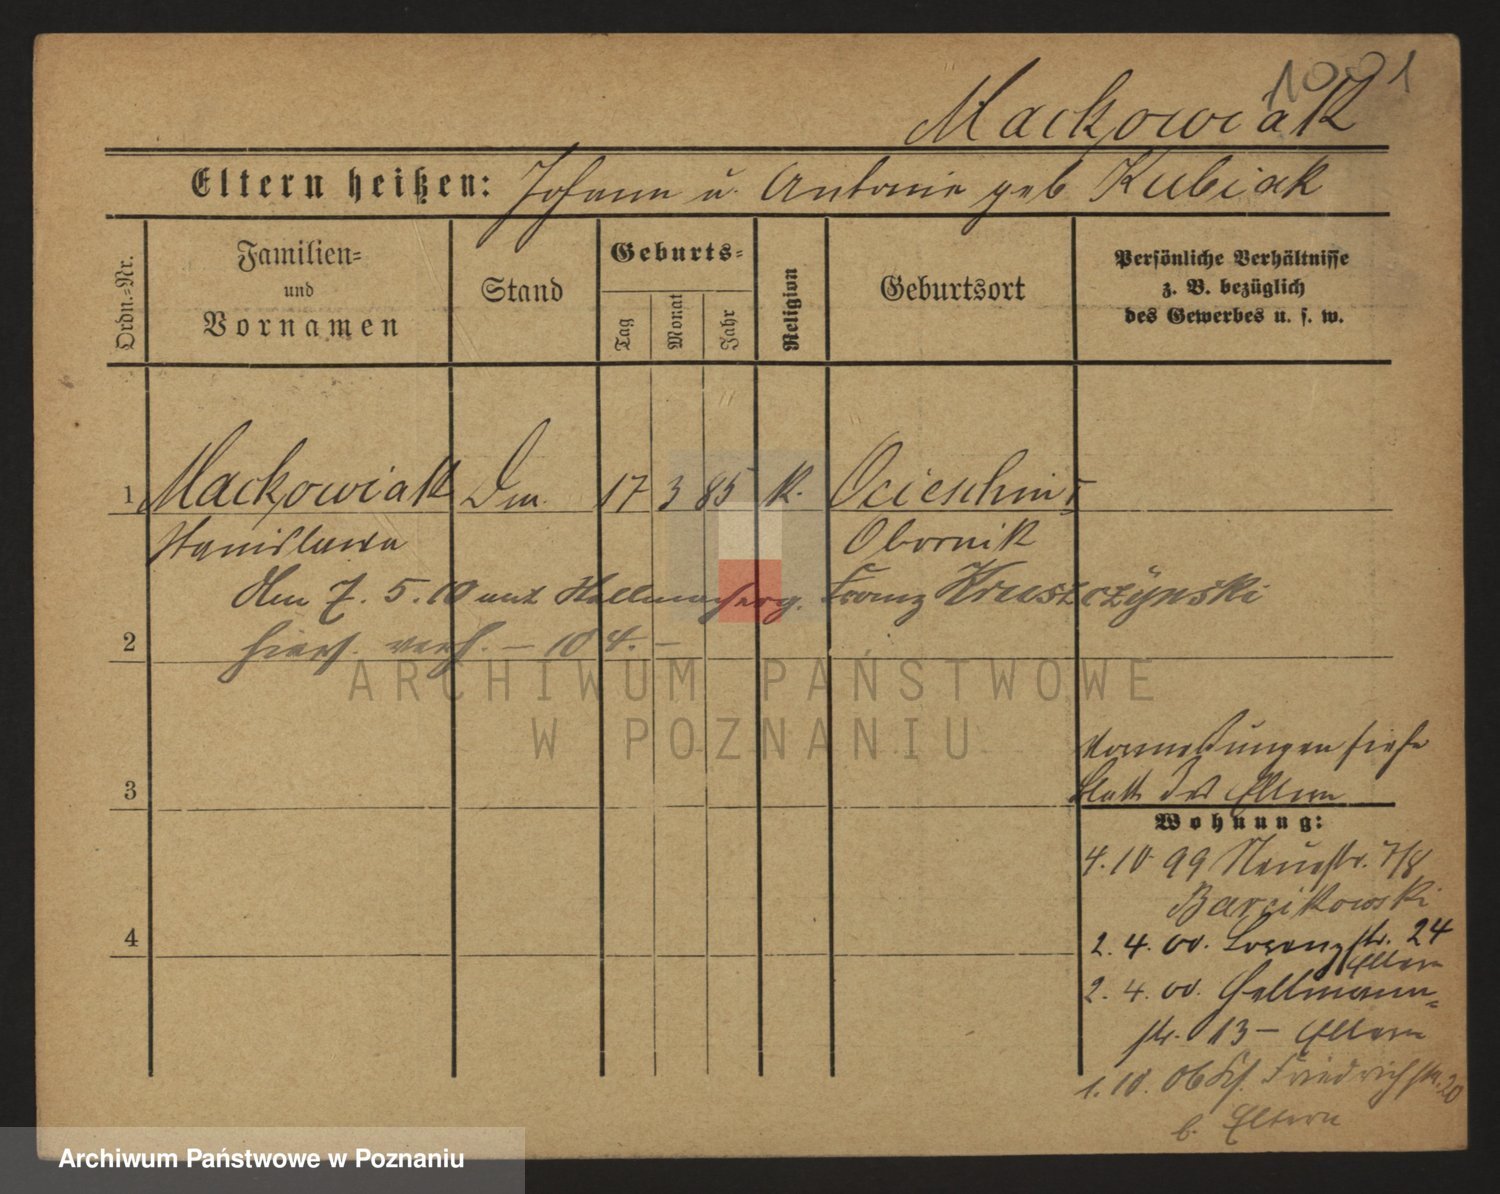 1091
Mackowiak
Eltern heißen: Johann u. Antonie geb Kubiak
Ordn.-Nr.
Familien-
und
Vornamen
Stand
Geburts-
Tag
Monat
Jahr
Religion
Geburtsort
Persönliche Verhältnisse
z. B. bezüglich
des Gewerbes u. s. w.
1 Mackowiak Dm. 17 3 85 K. Ocieschin
Stanislawa Obornik
Am 7. 5. 10 mit Franz Kruszczynski
2 hiers. verh. – 10 4. –
ARCHIWUM PAŃSTWOWE
W POZNANIU
Vormeldungen siehe
3 Blatt der Eltern
Wohnung:
4. 10 99 Neuestr. 7/8
Barcikowski
4
2. 4. 00. str. 24
Eltern
2. 4. 00. Hellmann-
str. 13 – Eltern
1. 10. 06 Friedrichstr. 20
b. Eltern
Archiwum Państwowe w Poznaniu